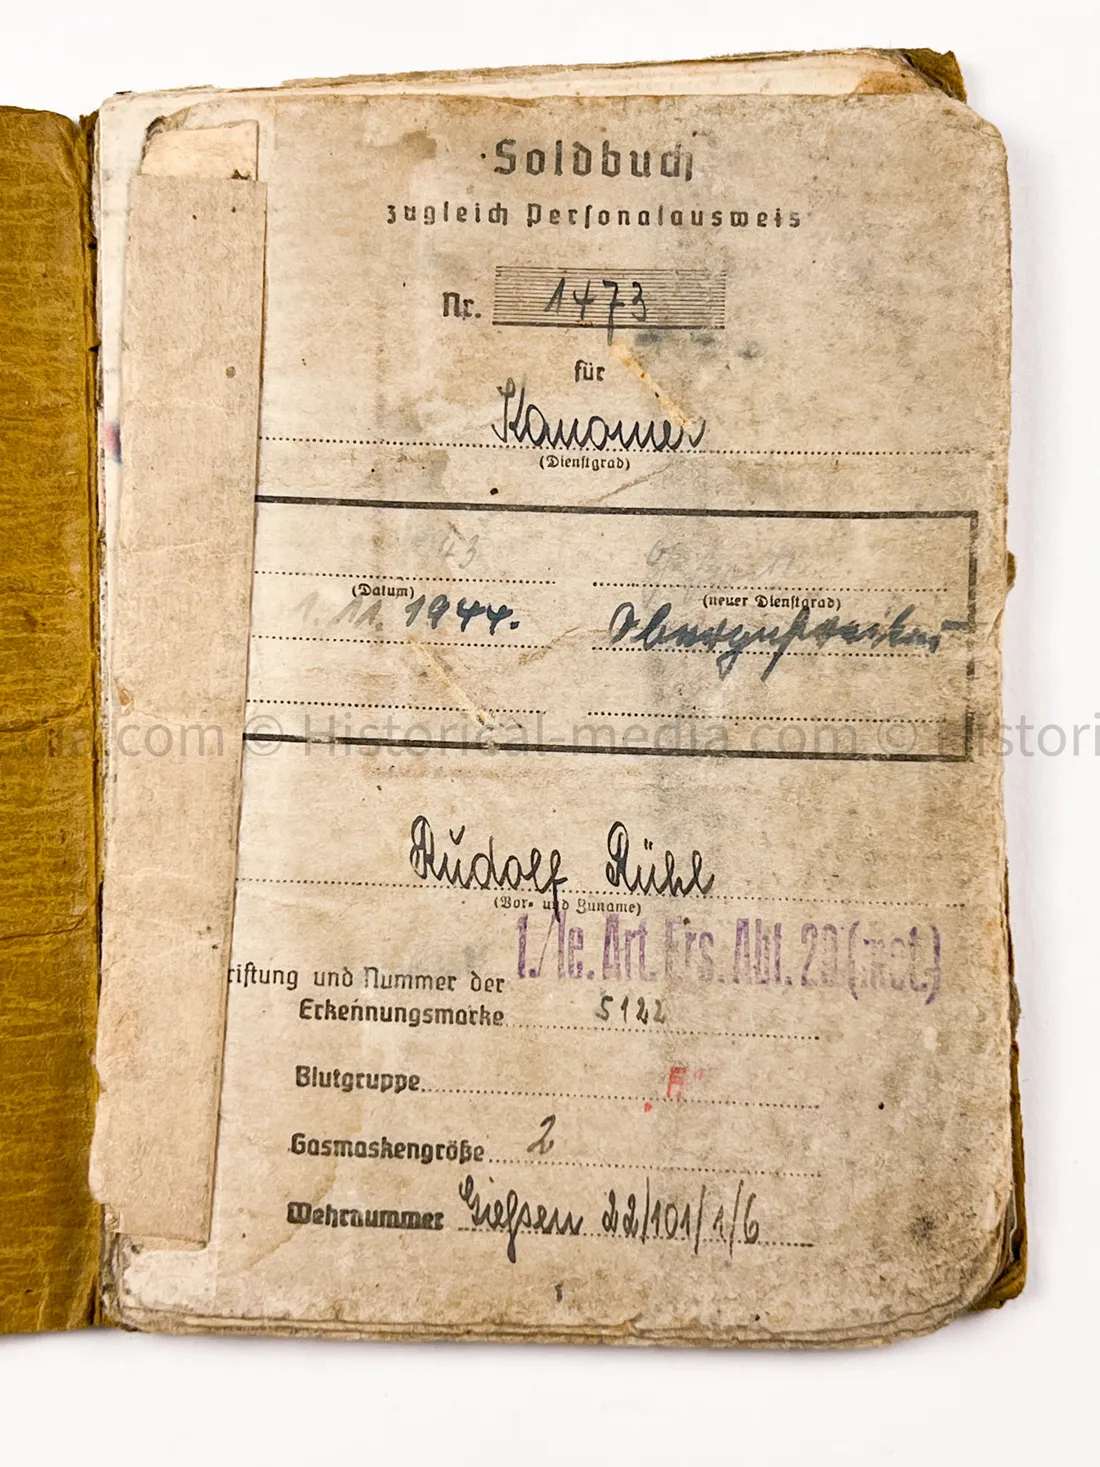 Soldbuch
zugleich Personalausweis
Nr. 1473
für
Kanonier
(Dienstgrad)
43
(Datum) (neuer Dienstgrad)
1.11. 1944. Obergefreiter
Historical-media.com © Historical-media.com © Histori
Rudolf Rühl
(Vor- und Zuname)
1./le. Art. Ers. Abt. 29 (mot.)
riftung und Nummer der
Erkennungsmarke 5122
Blutgruppe
Gasmaskengröße 2
Wehrnummer Gießen 22/101/1/6
1